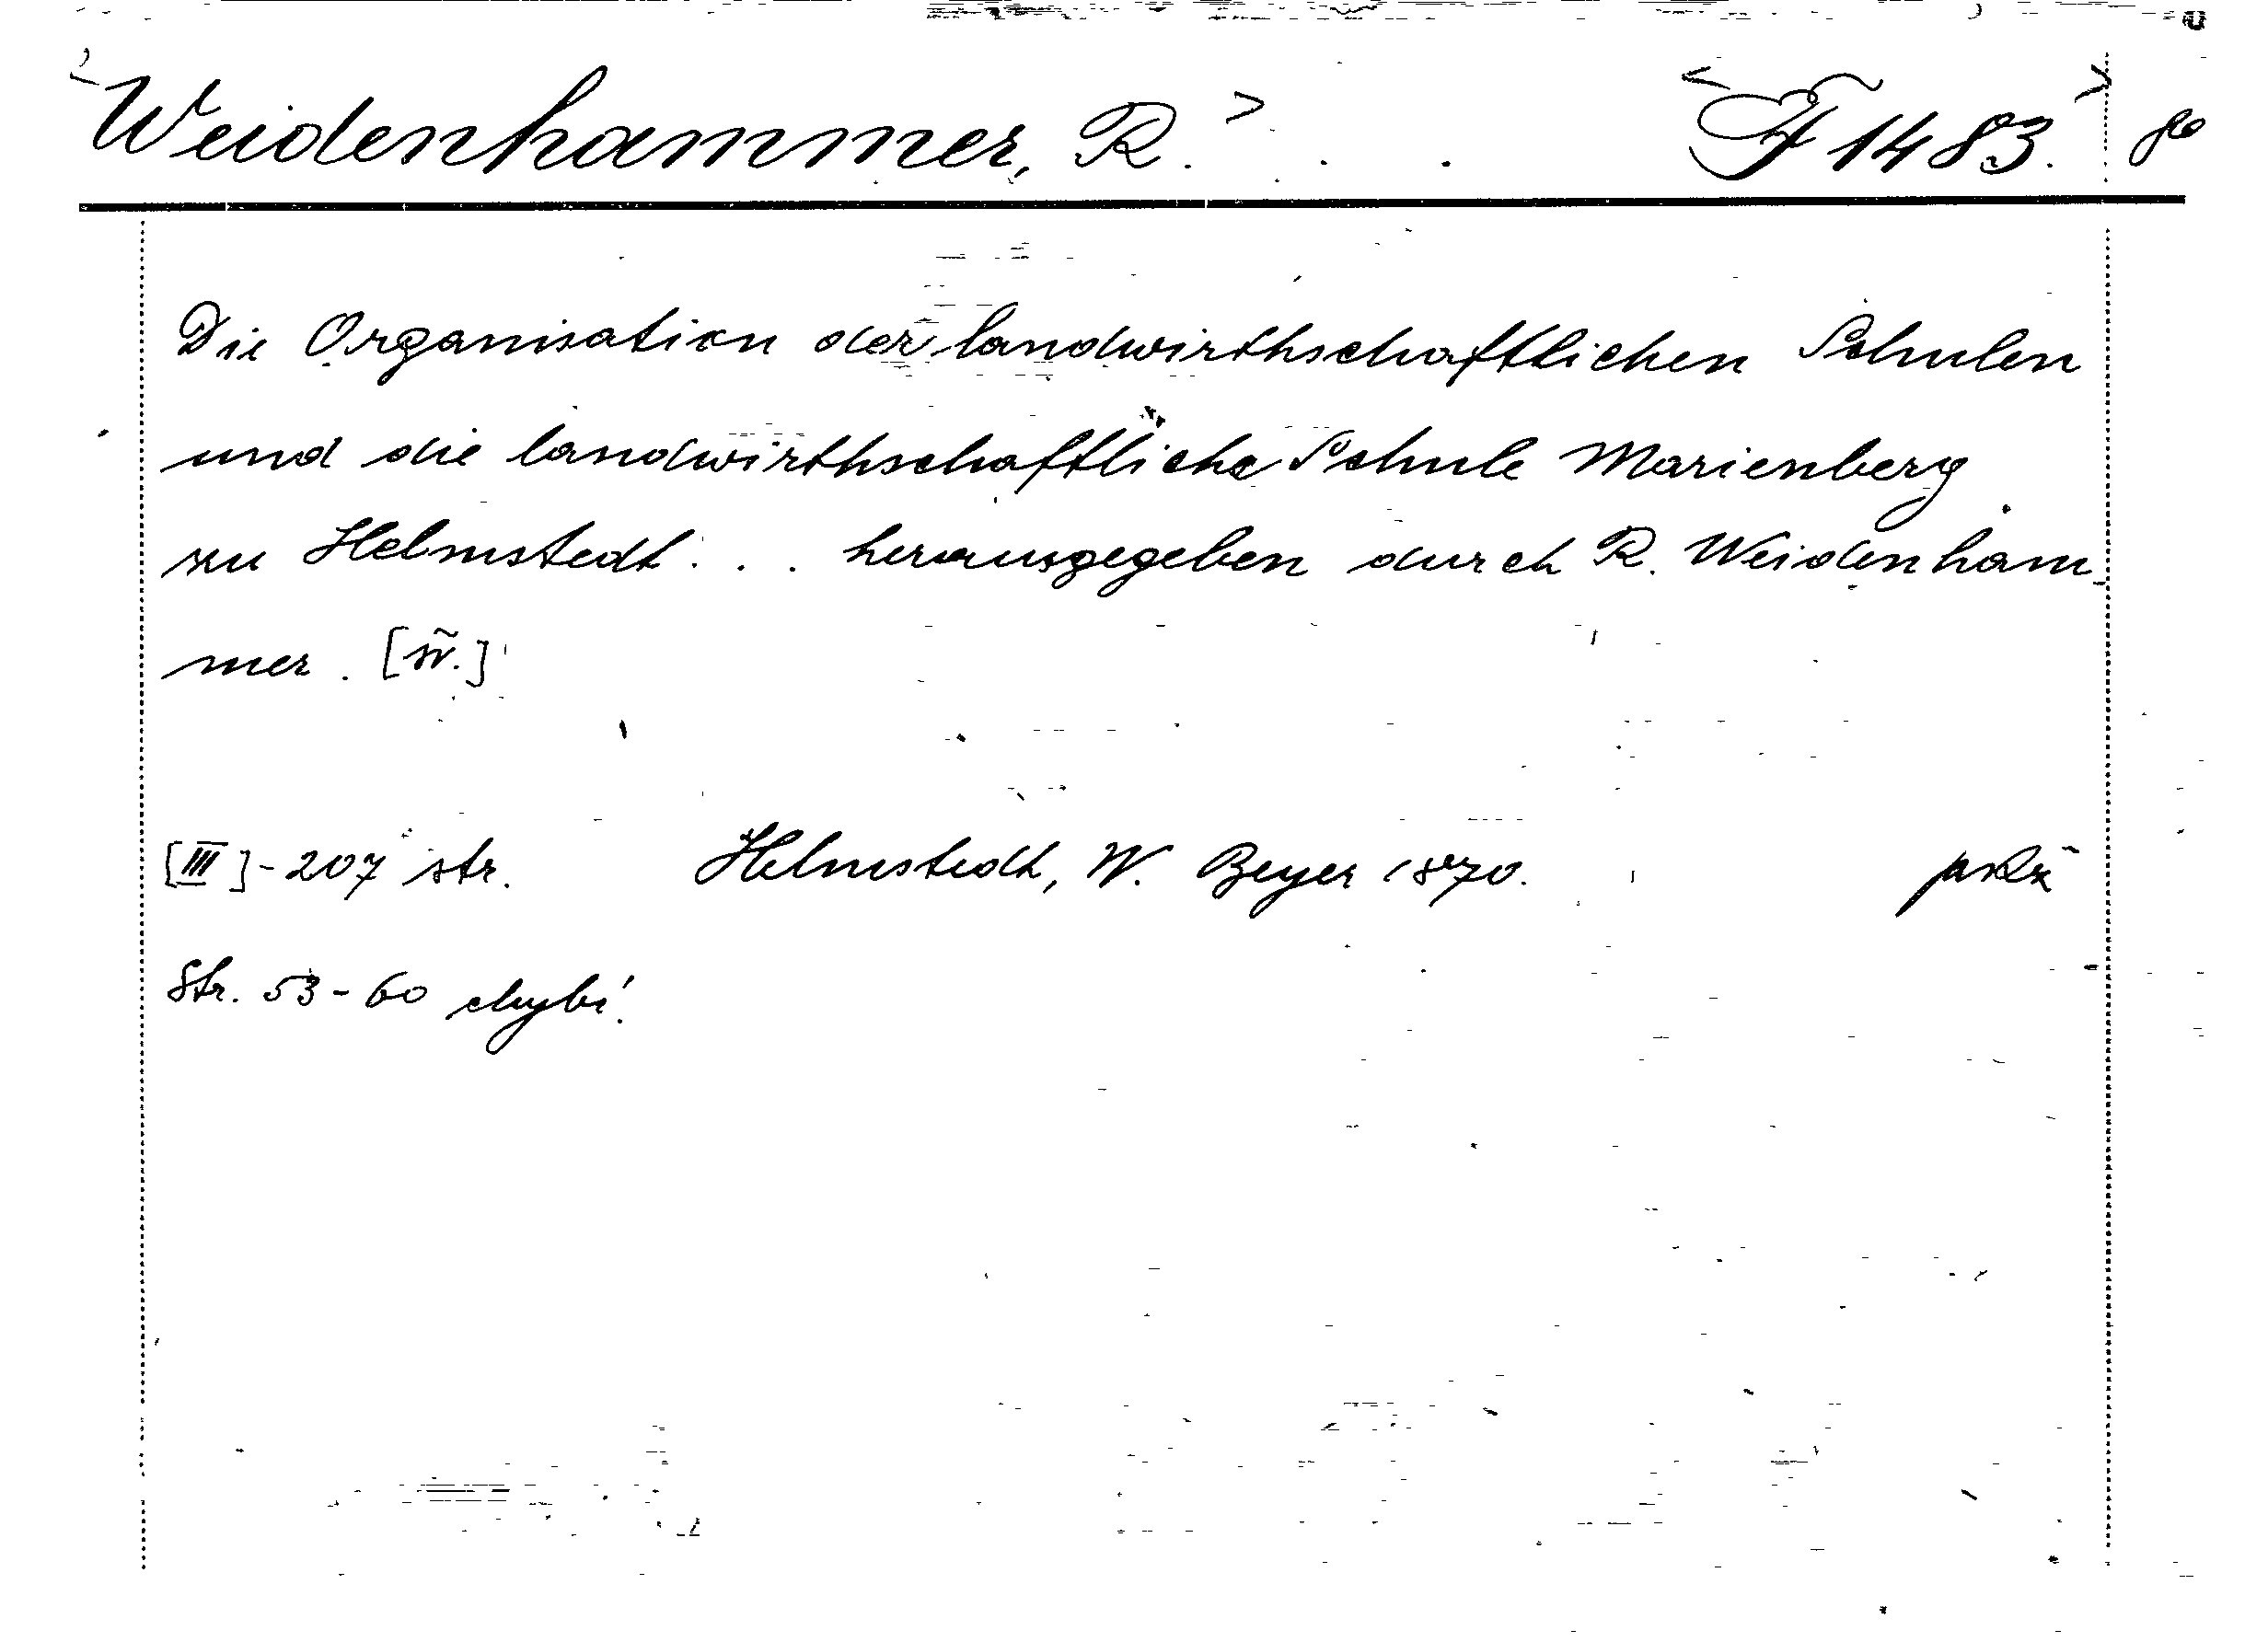 <Weidenhammer, R.> <F 1483.>
Die Organisation der landwirthschaftlichen Schulen
und die landwirthschaftliche Schule Marienberg
zu Helmstedt . . . herausgegeben durch R. Weidenham-
mer. [sv.]
[III]-207 str. Helmstedt, W. Beyer 1870.
Str. 53-60 chybí.